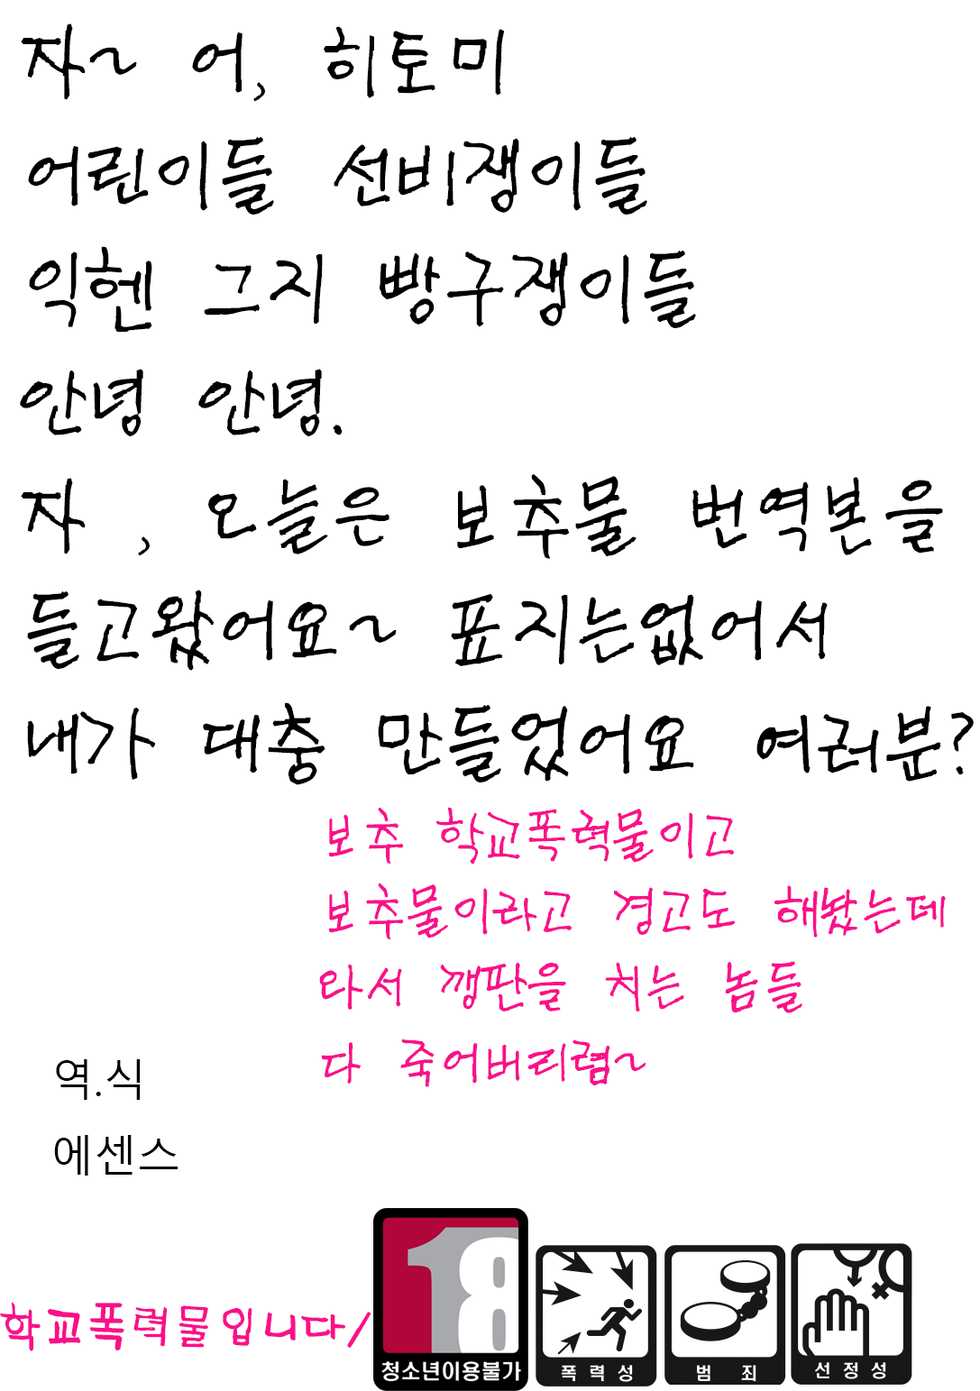 자~ 어, 히토미
어린이들 선비쟁이들
익헨 그지 빵구쟁이들
안녕 안녕.
자 , 오늘은 보추물 번역본을
들고왔어요~ 표지는없어서
내가 대충 만들었어요 여러분?
보추 학교폭력물이고
보추물이라고 경고도 해놨는데
와서 깽판을 치는 놈들
다 죽어버리렴~
역.식
에센스
학교폭력물입니다/
18
청소년이용불가
폭력성
범죄
선정성